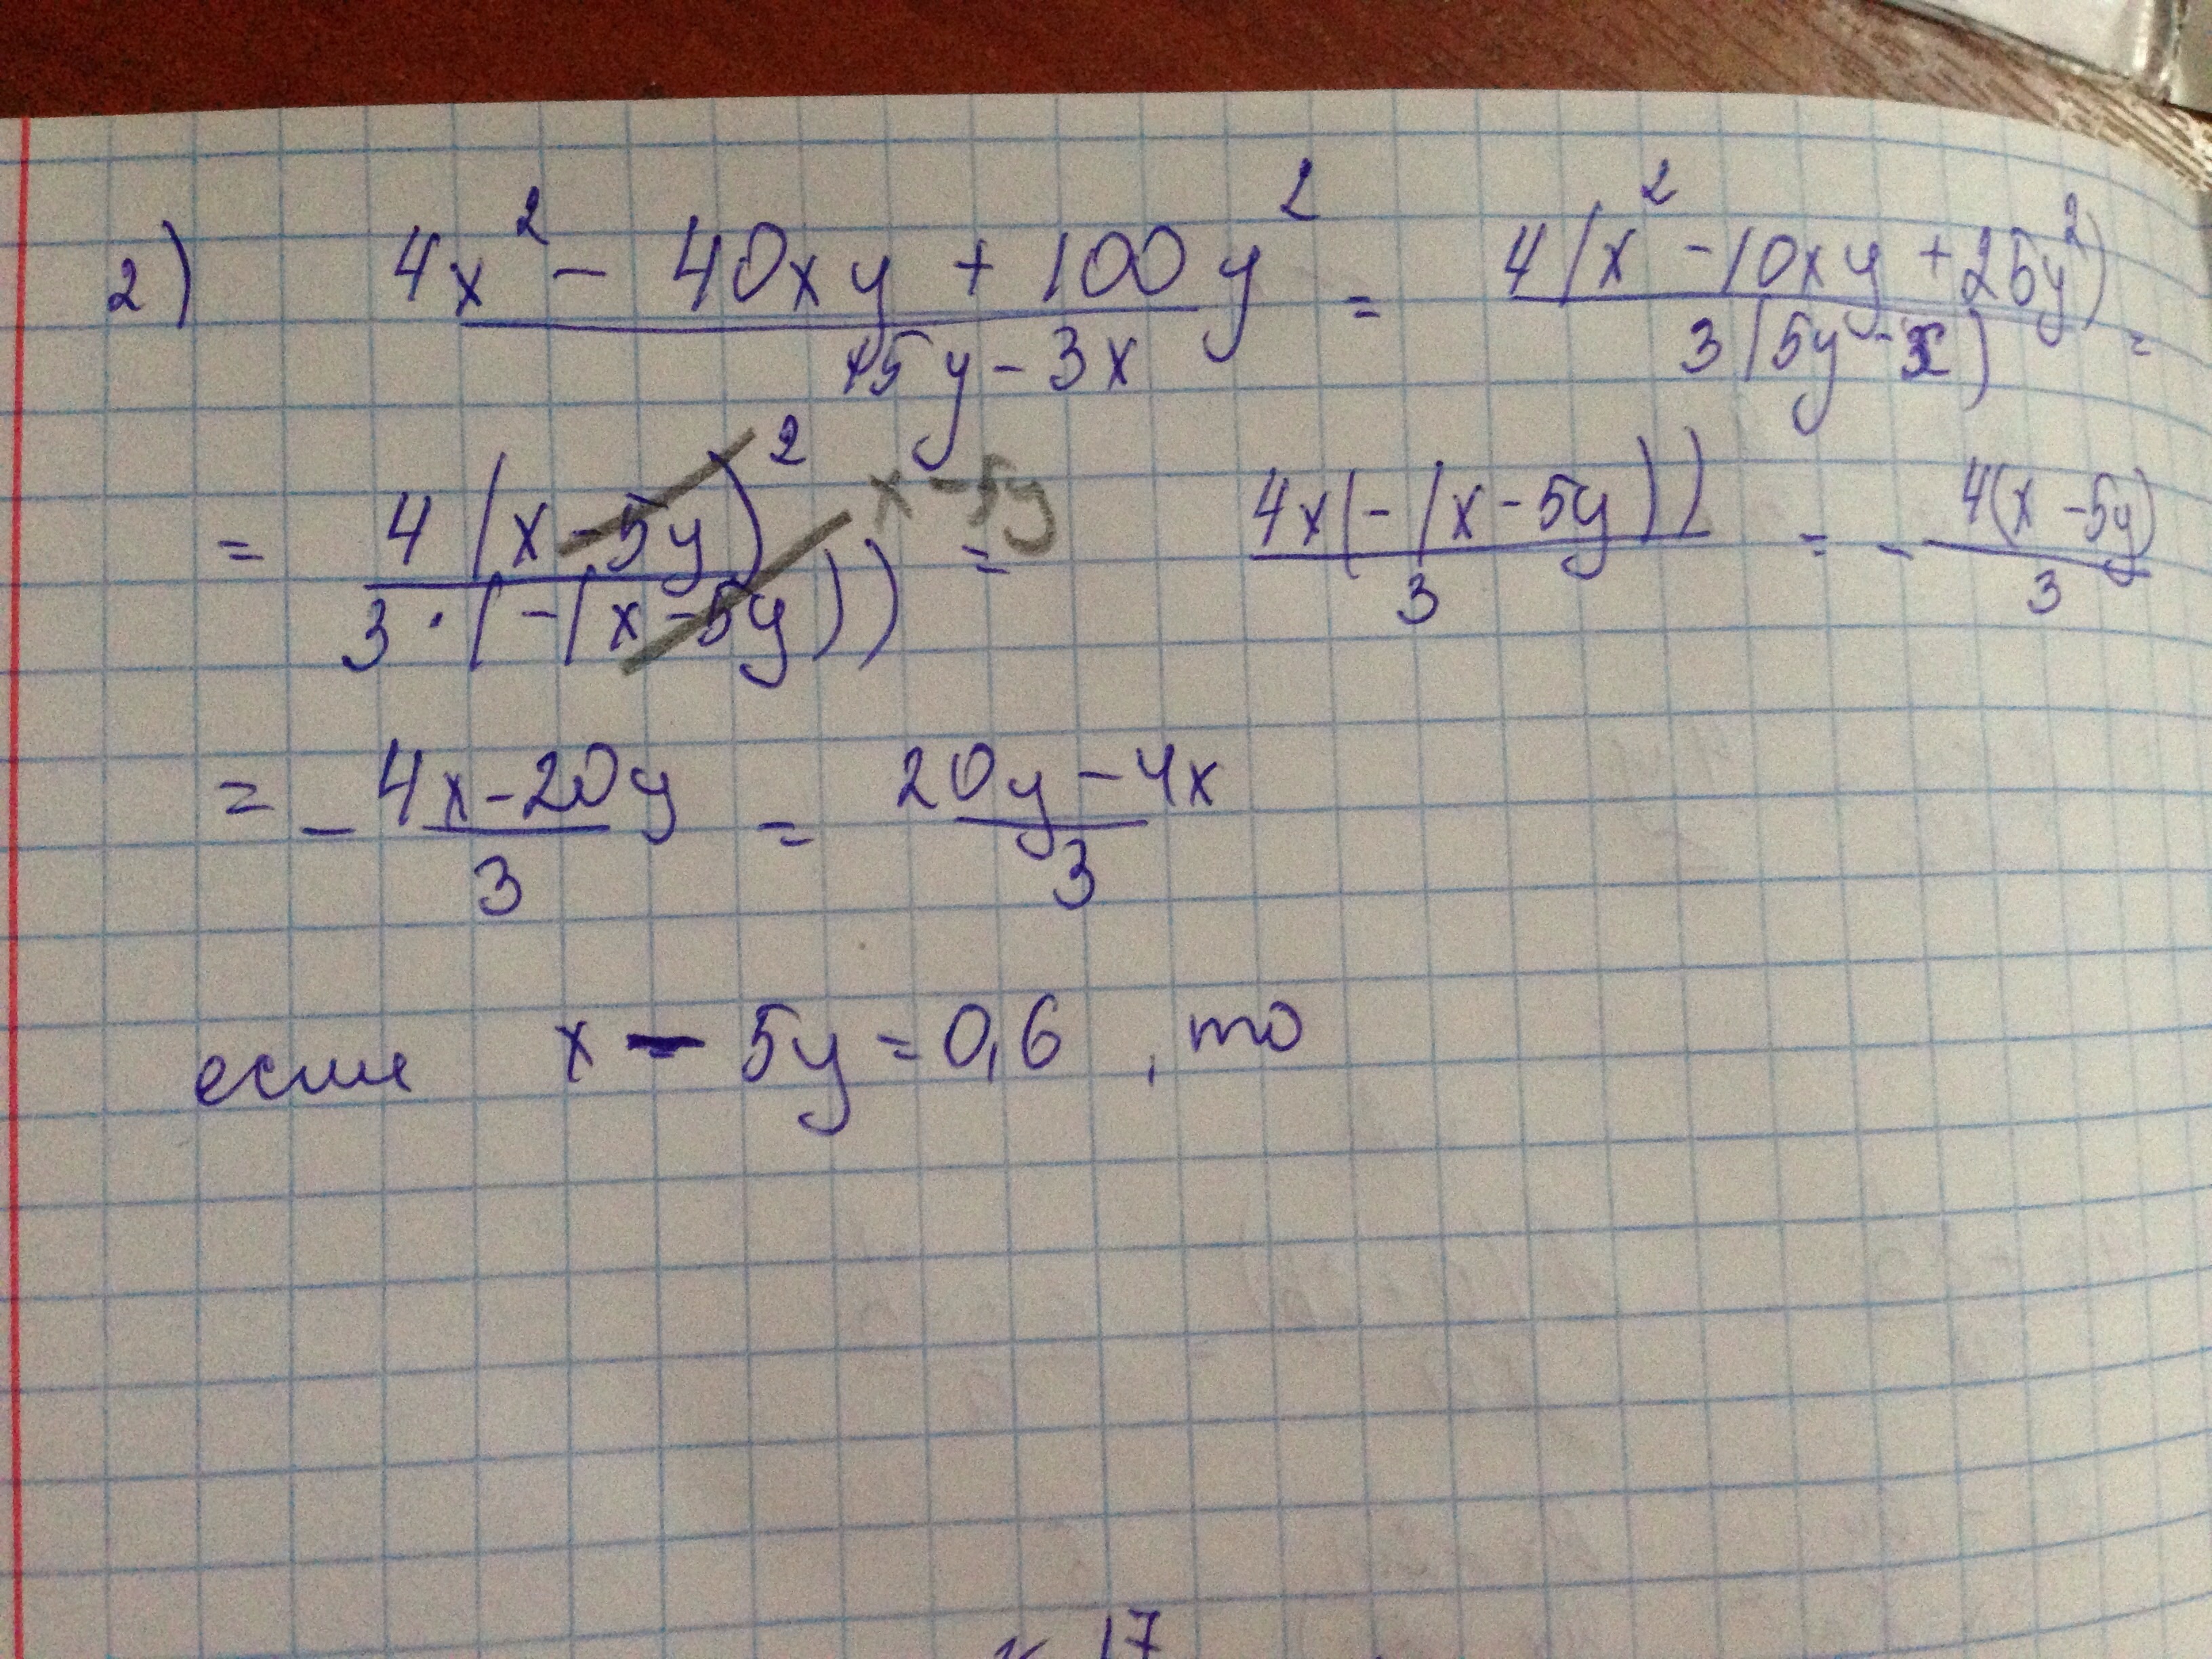 2) (4x² - 40xy + 100y²)/(15y - 3x) = 4(x² - 10xy + 25y²)/3(5y - x) =
= 4(x - 5y)²/3·(-(x - 5y)) x - 5y = 4x(-(x - 5y))/3 = - 4(x - 5y)/3
= - (4x - 20y)/3 = (20y - 4x)/3
если x - 5y = 0,6 , то
17